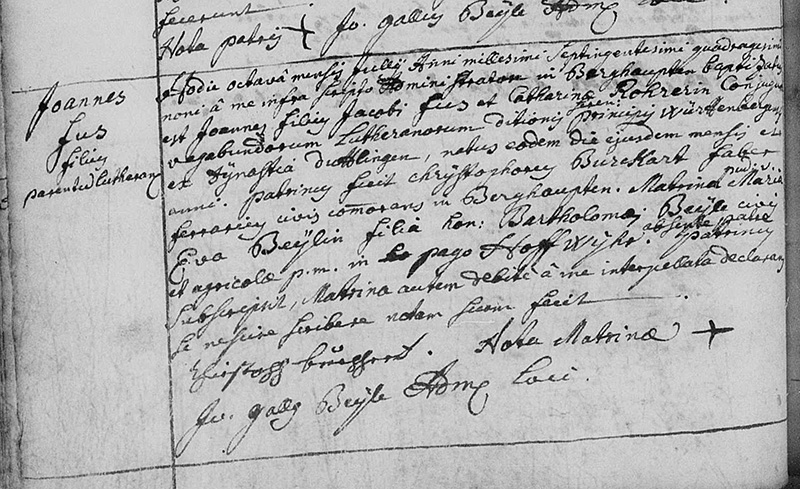 fecerunt
Nota patris + Jo. Gallus Beyle Adm
Joannes
Fus
filius
parentum Lutheranorum
Hodie octava mensis Julij Anni millesimi Septingentesimi quadragesimi
noni à me infra scripto Administratore in Berghaupten baptizatus
est Joannes filius Jacobi Fus et Catharinæ Rohrerin Conjugum
vagabundorum Lutheranorum ditionis seren: Principis Württenbergensis
ex Dynastia duttlingen, natus eodem die ejusdem mensis et
anni. Patrinus fuit Chrystophorus Burckart faber
ferrarius civis com̄orans in Berghaupten. Matrina Maria
Eva Beylin filia hon: Bartholomæi Beyle civis
et agricolæ p.m. in pago Hoff Wyhr. absente patre Patrinus
subscripsit, Matrina autem debitè à me interpellata declarans
se nescire scribere notam suam fecit
Nota Matrinæ +
Jo. Gallus Beyle Adm Loci.